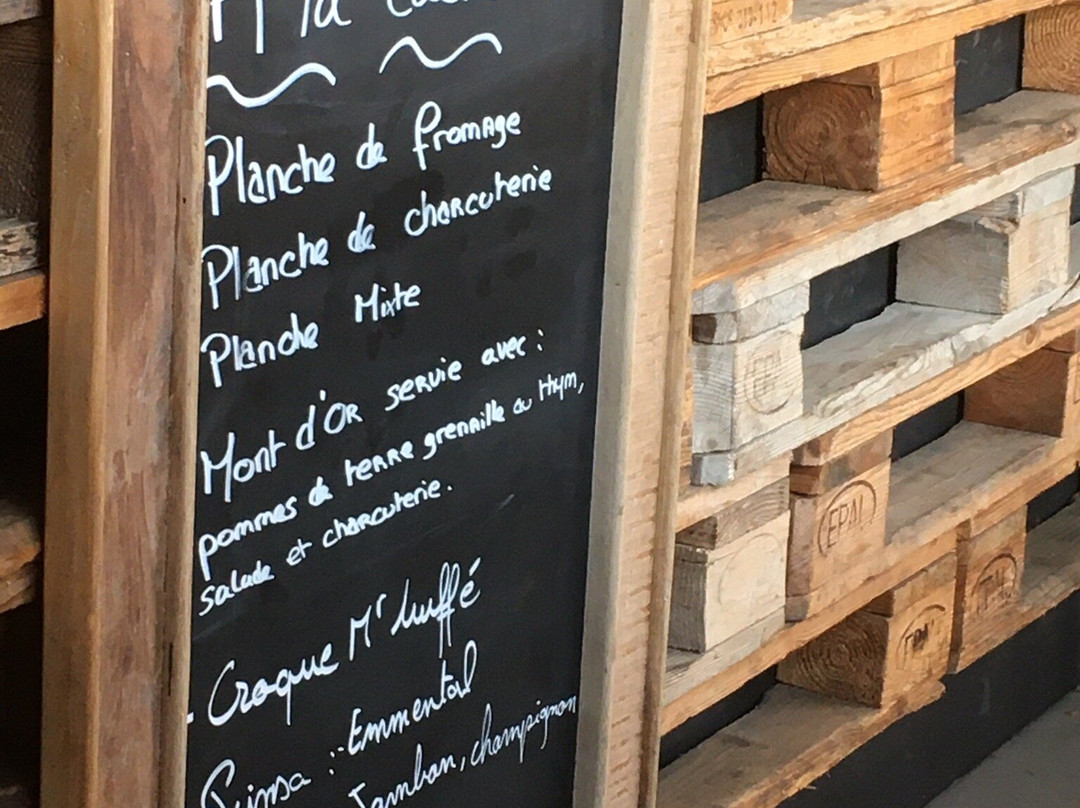 Planche de fromage
Planche de charcuterie
Planche Mixte
Mont d'Or servie avec :
pommes de terre grenaille au thym,
salade et charcuterie.
- Croque Mr truffé
: Emmental
Jambon, champignon
EPAL
EPAL
EPAL
EPAL